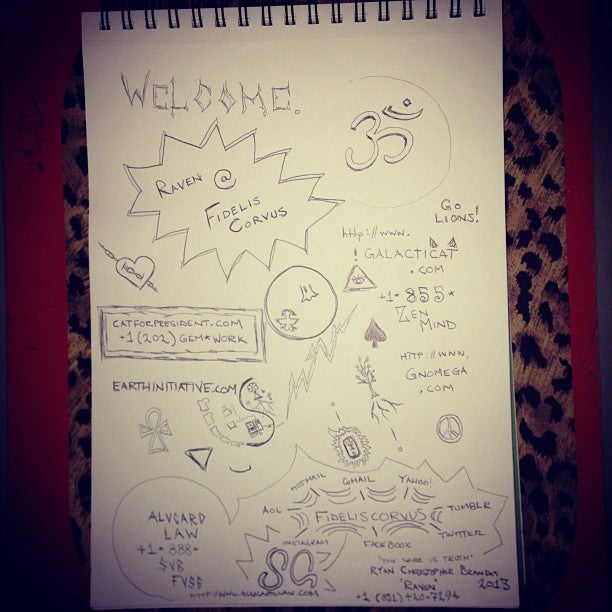 WELCOME.
RAVEN @
FIDELIS
CORVUS
GO
LIONS!
http://www.
GALACTICAT
.COM
+1•855•
ZEN
MIND
CATFORPRESIDENT.COM
+1(202) GEM★WORK
HTTP://WWW.
GNOMEGA
.COM
EARTHINITIATIVE.COM
HOTMAIL
GMAIL
YAHOO!
AOL
FIDELISCORVUS
TUMBLR
TWITTER
INSTAGRAM
FACEBOOK
ALVCARD
LAW
+1•888•
$VB
FV$E
"THE WORK IS TRUTH"
RYAN CHRISTOPHER BRANDES
"RAVEN"
2013